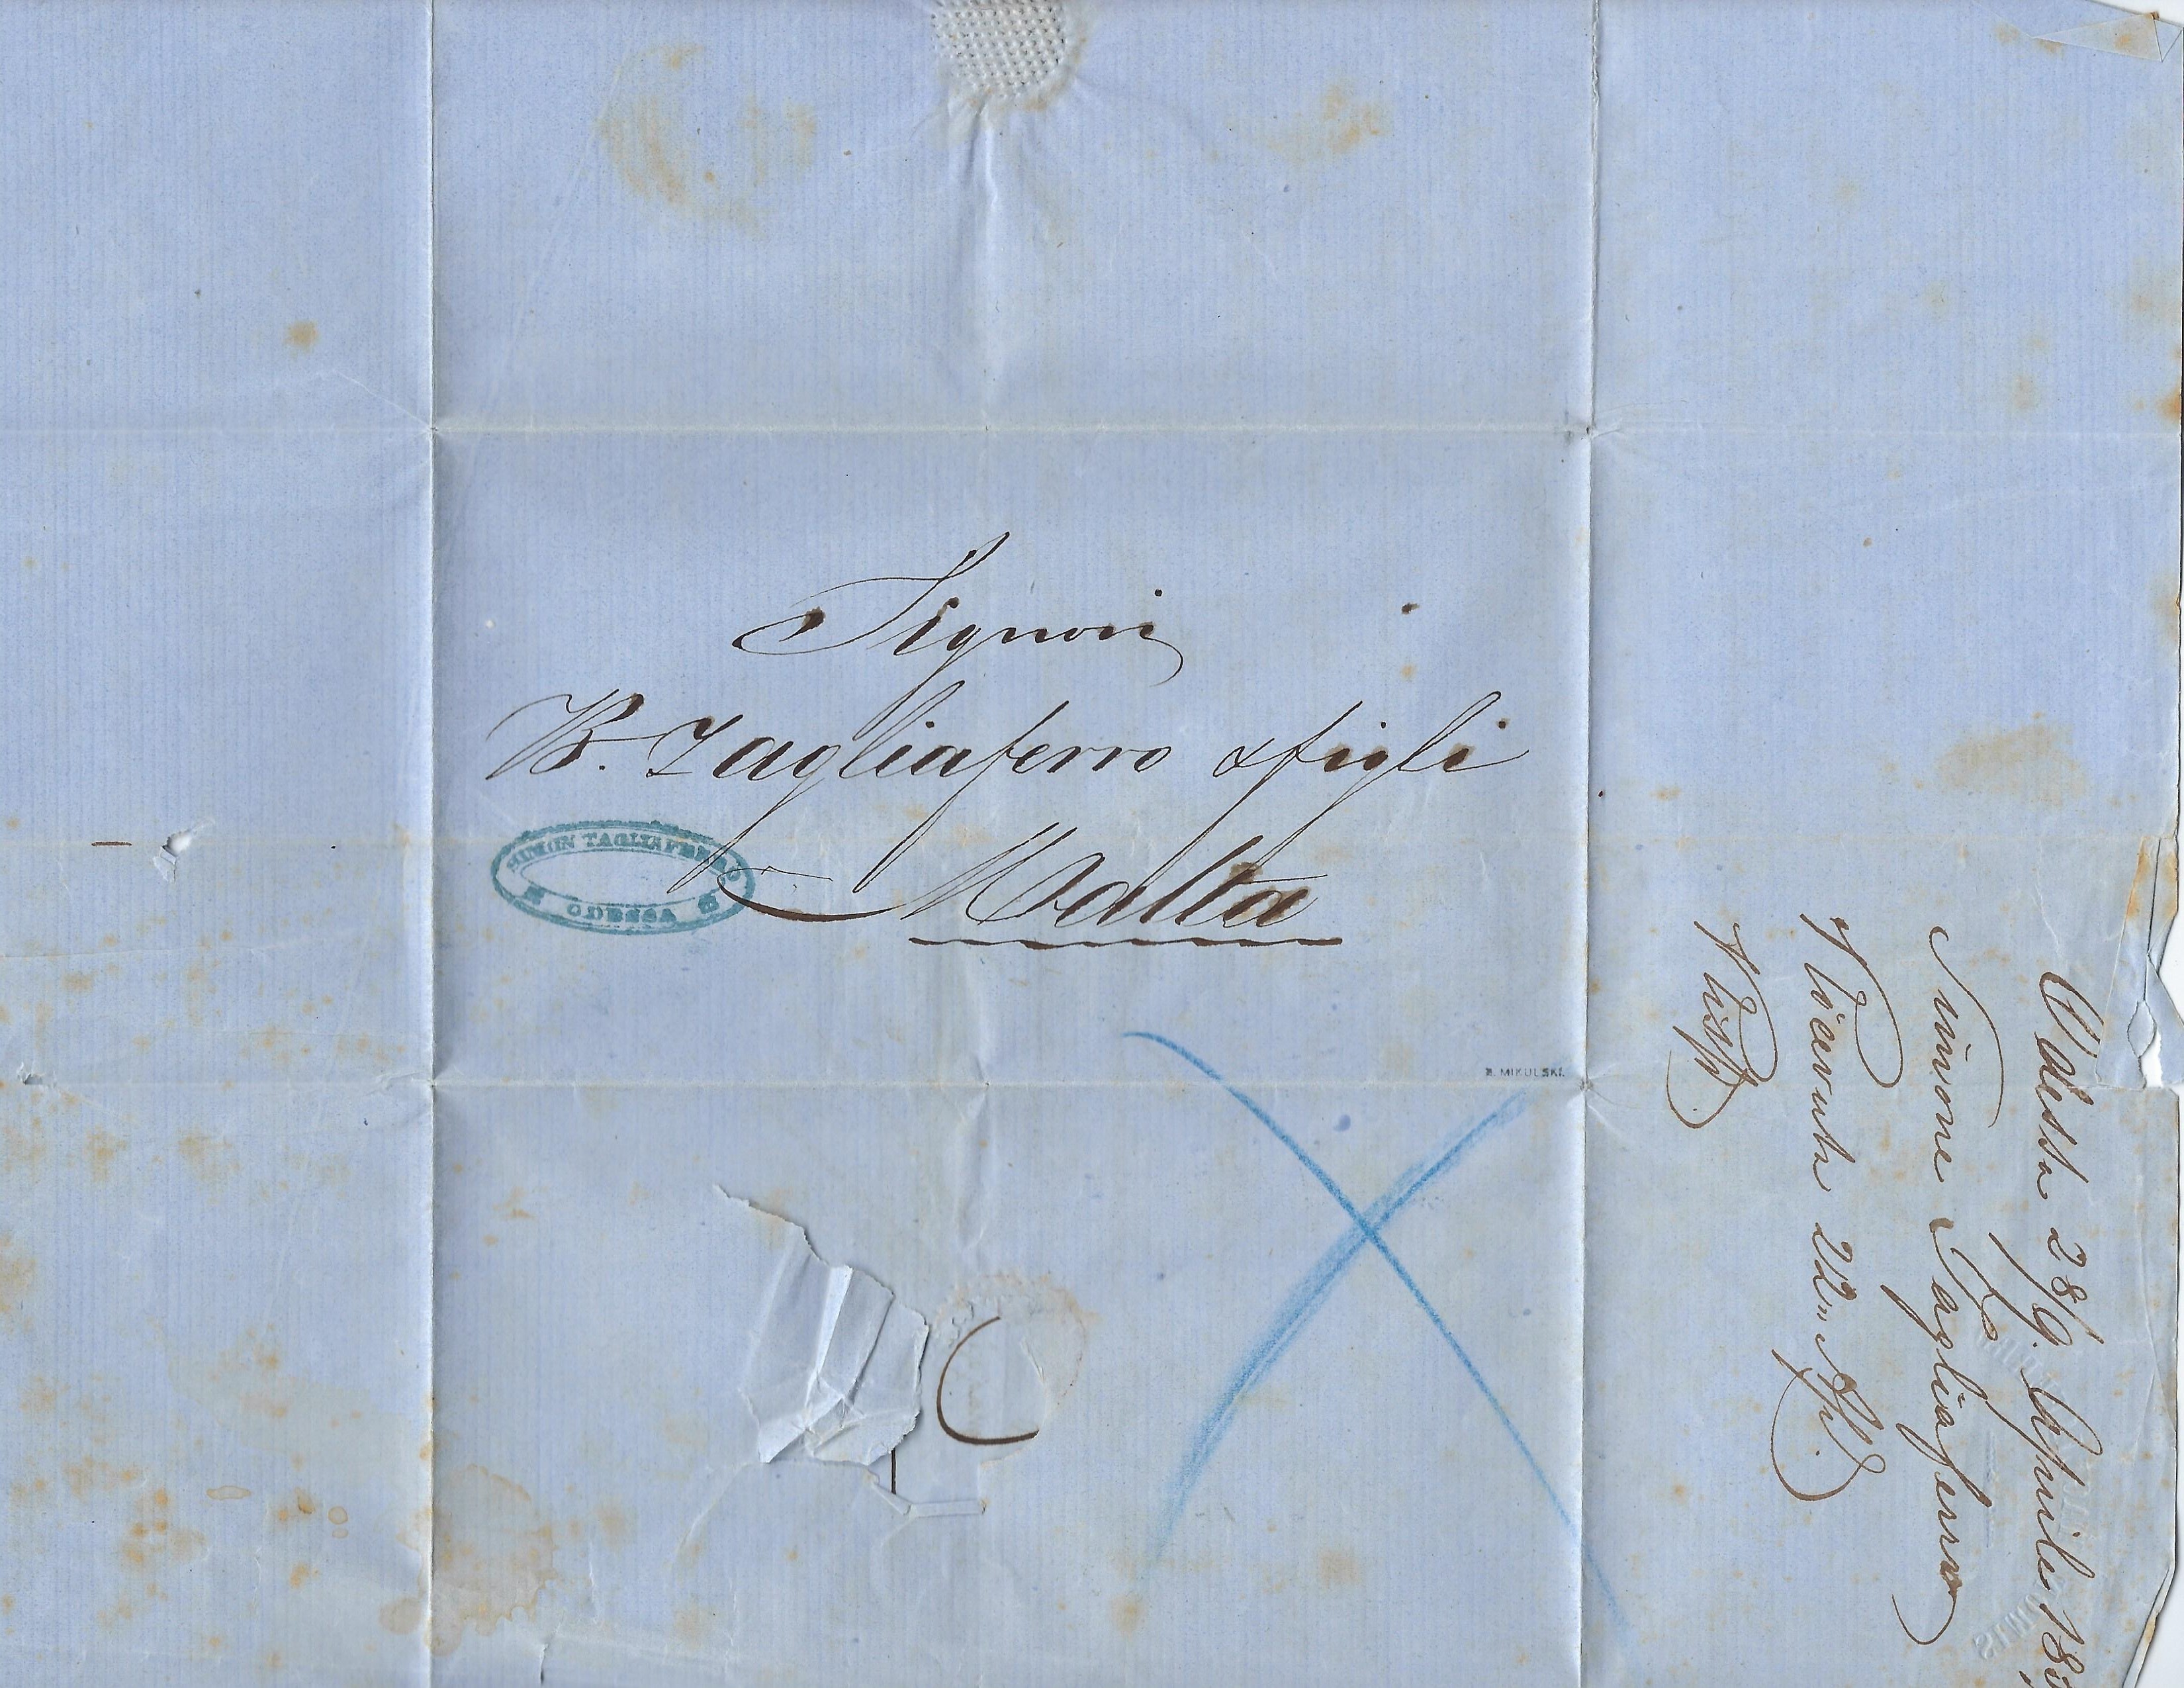 Signori
B. Tagliaferro & figli
Malta
SIMON TAGLIAFERRO
ODESSA
R. MIKULSKI.
Odessa 28/9. Aprile 18
Simone Tagliaferro
Ricevuta 22 " Apl.
Risp.